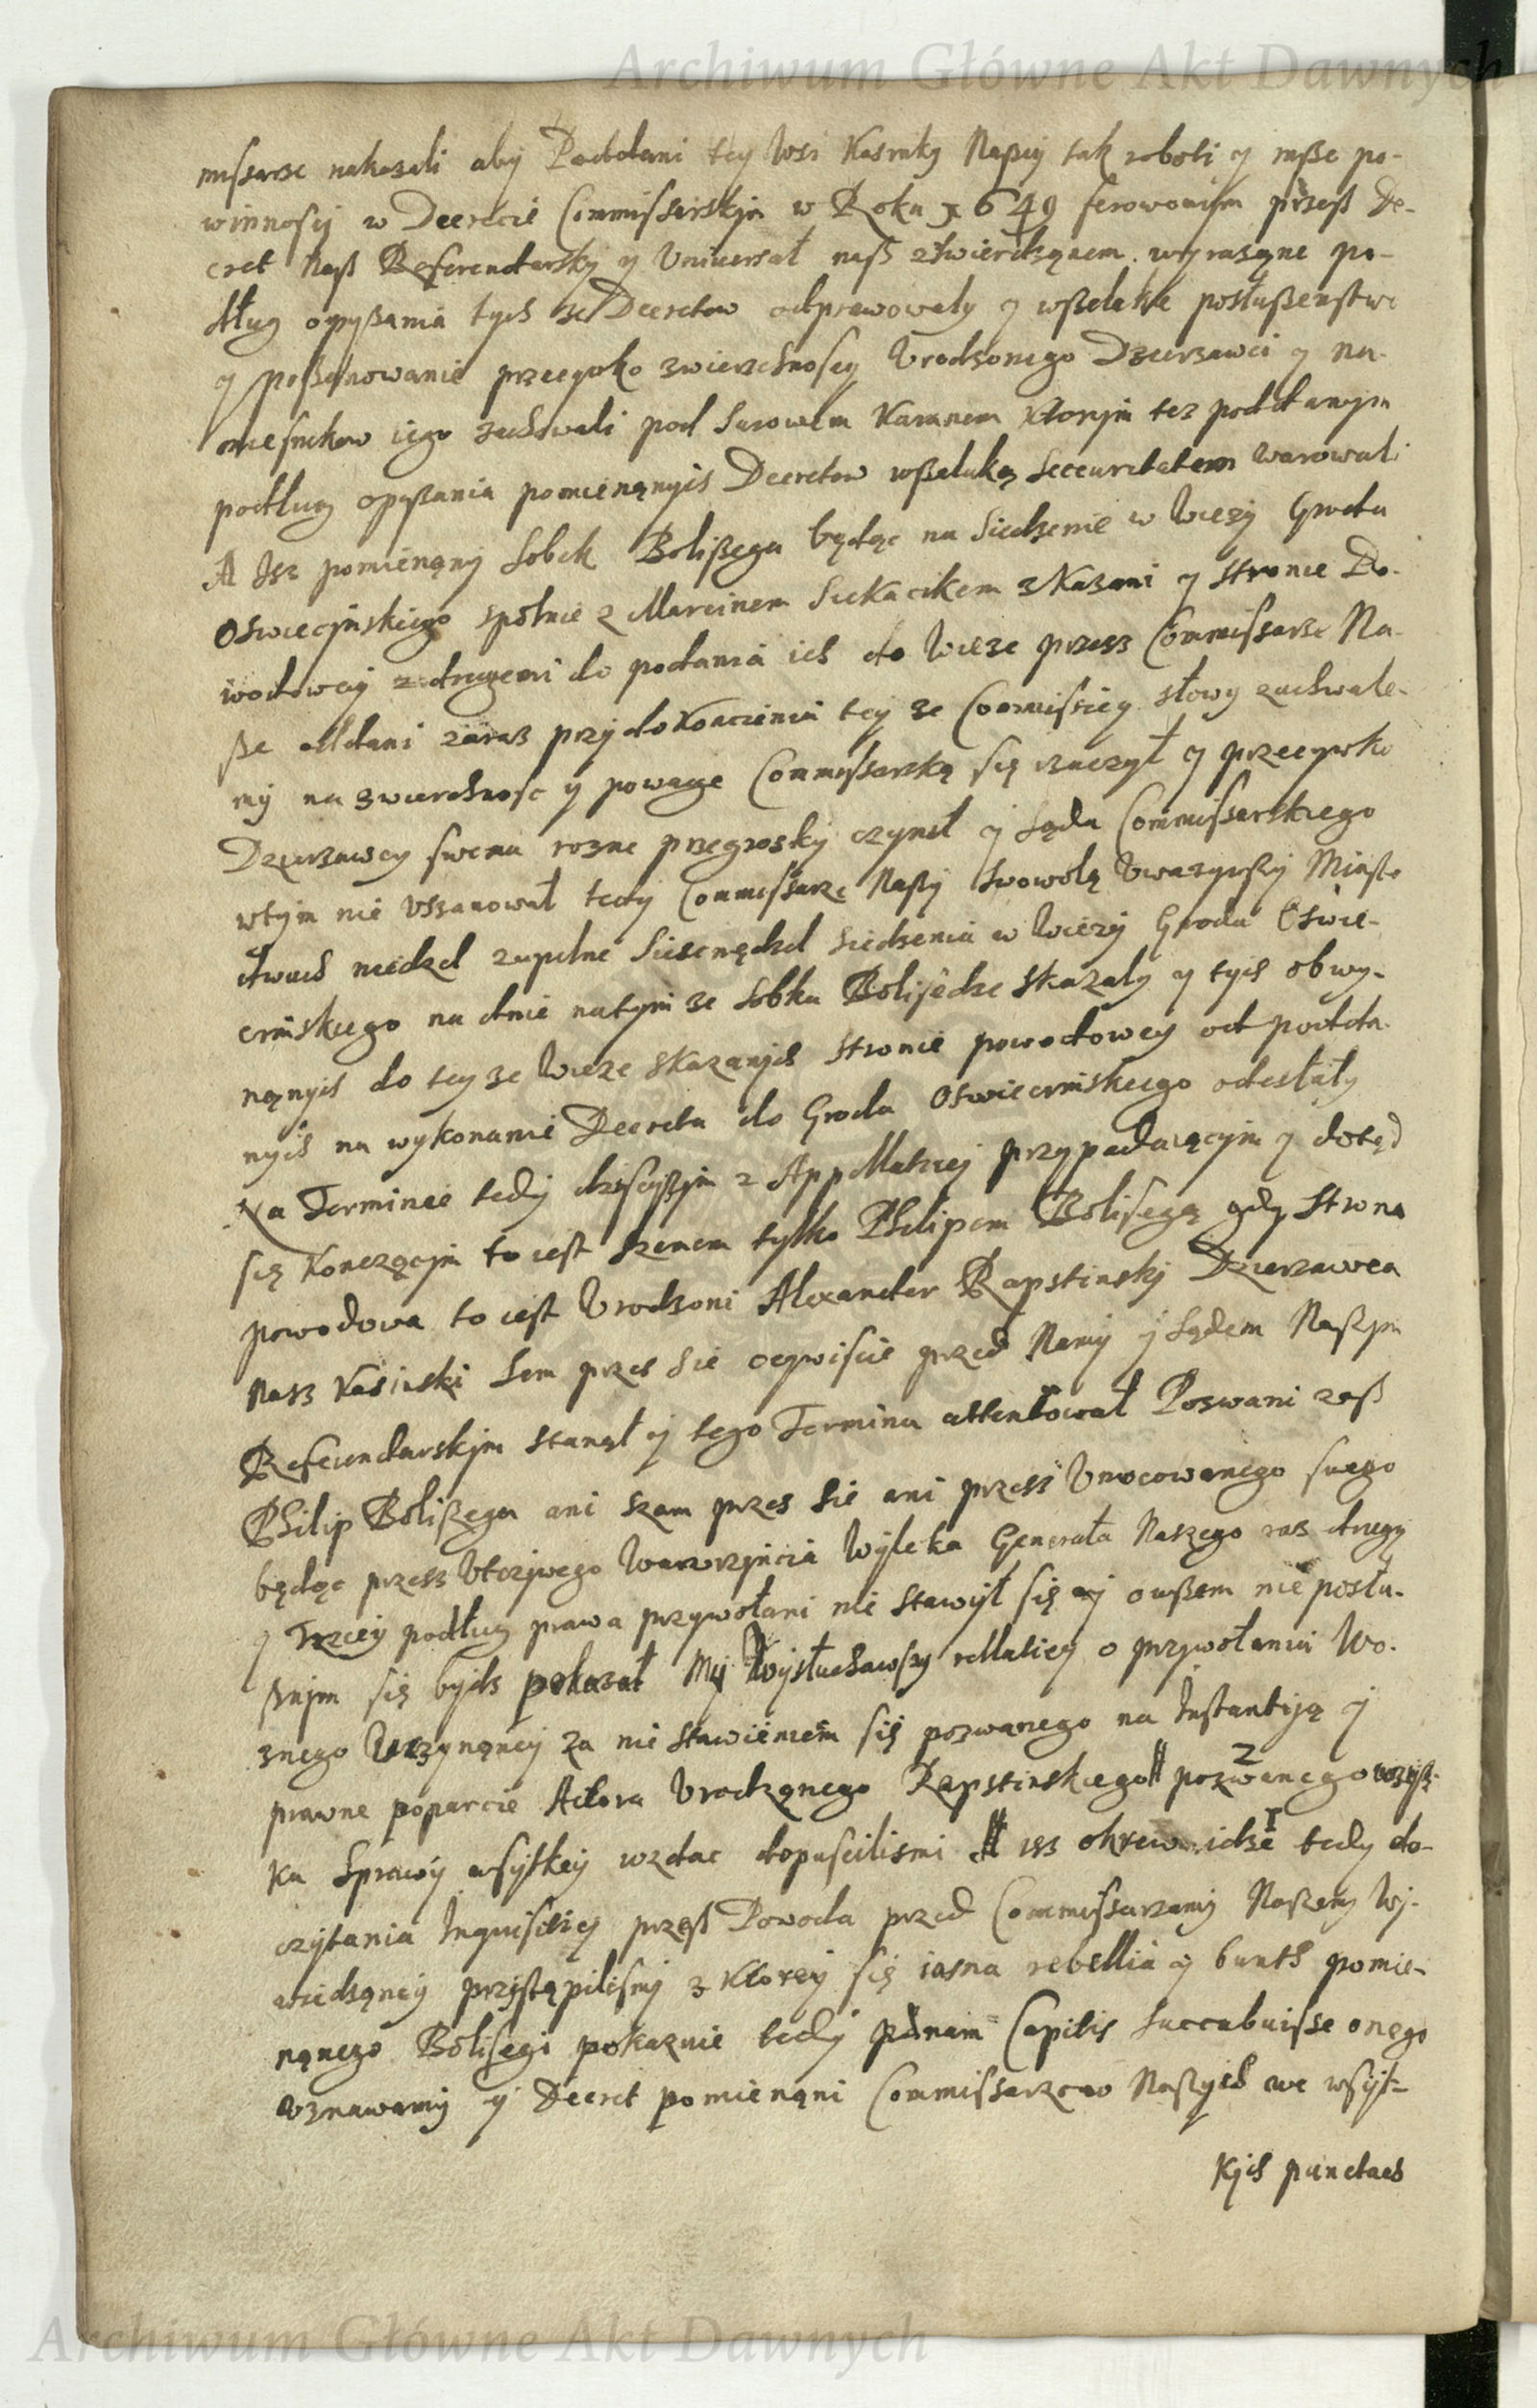 Archiwum Główne Akt Dawnych
missarze nakazali aby Poddani tey Wsi Kasinky Naszey tak roboti y insze po-
winnoscj w Decrecie Commissarskjm w Roku 1649 ferowonijm przesz De-
cret Nasz Referendarskj y Uniuersał nasz ztwierdząnem wyrazęne po-
dług opyszania tych ze Decretow odprawowaly y wszelakie posłuszenstwo
y poszanowanie przecywko zwierzchnoscy Vrodzonego Dzierzawci y na-
miesnikow iego zachowali pod surowem karanem ktorjm tez poddanym
podług opyszania pomienąnych Decretow wszelaką seccuritatem warowali
A Isz pomienąny Sobek Boliszega będąc na siedzenie w Wiezy Grodu
Oswiecjnskiego społnie z Marcinem Siekacikem zKazani y stronie Po-
wodowey z drugemi do podania ich do Wieze przesz Commissarze Na-
sze oddani zaraz przj dokonczeniu tey ze Commissiey słowy zuchwałe-
my na zwierchnosc y powage Commissarską się rzuczył y przecywko
Dzierzawcy swemu rozne przegrozky czynił y Sądu Commissarskiego
wtym nie Vszanował tedy Commissarze Naszy swowolą Vwazywszy Miasto
dwuch niedzel zupełne siesc niedzel siedzenia w Wiezy Grodu Oswie-
cimskiego na dnie natym ze Sobku Bolisedze skazały y tych obwy-
nąnych do tey ze Wieze skazanych stronie powodowey od poddа-
nych na wykonanie Decretu do Grodu Oswiecimskiego odesłały
Na Terminie tedy dzisieyszym z Appellatiey przypadaiącym y dotąd
się konczącjm to iest szenem tylko Philipem Bolisegą gdy strona
powodowa to iest Vrodzoni Alexander Rapstinskj Dzierzawca
Nasz Kasinski sam przes sie oczwiscie przed Namy y Sądem Naszym
Referendarskjm stanął y tego Terminu attentował Pozwani zasz
Philip Boliszega ani szam przes sie ani przesz Vmocowanego swego
będąc przesz Vtczjwego Wawrzyncia Wyleka Generała Naszego raz drugy
y Trzeci podług prawa przywołani nie stawjł się y owszem nie posłu-
sznjm się bydz pokazał My Wysłuchawszy rellatiey o przywołaniu Wo-
znego Vczynąney za nie stawieniem się pozwanego na Instantiją y
prawne poparcie Actora Vrodząnego Rapstinskiego pozwanego wzys-
ku sprawy wsytkey wzdac dopuscilismi A isz 
 tedy do-
czytania Inquisitiey przesz Powoda przed Commissarzamy Naszemy Wy-
wiedząney przystąpilismj z ktorey się iasna rebellia y bunth pomie-
nąnego Bolisegi pokazuie tedy pænam Capitis succubuisse onego
Vznawamy y Decret pomienąni Commissarzow Naszych we wsyt-
kich punctach
Archiwum Główne Akt Dawnych